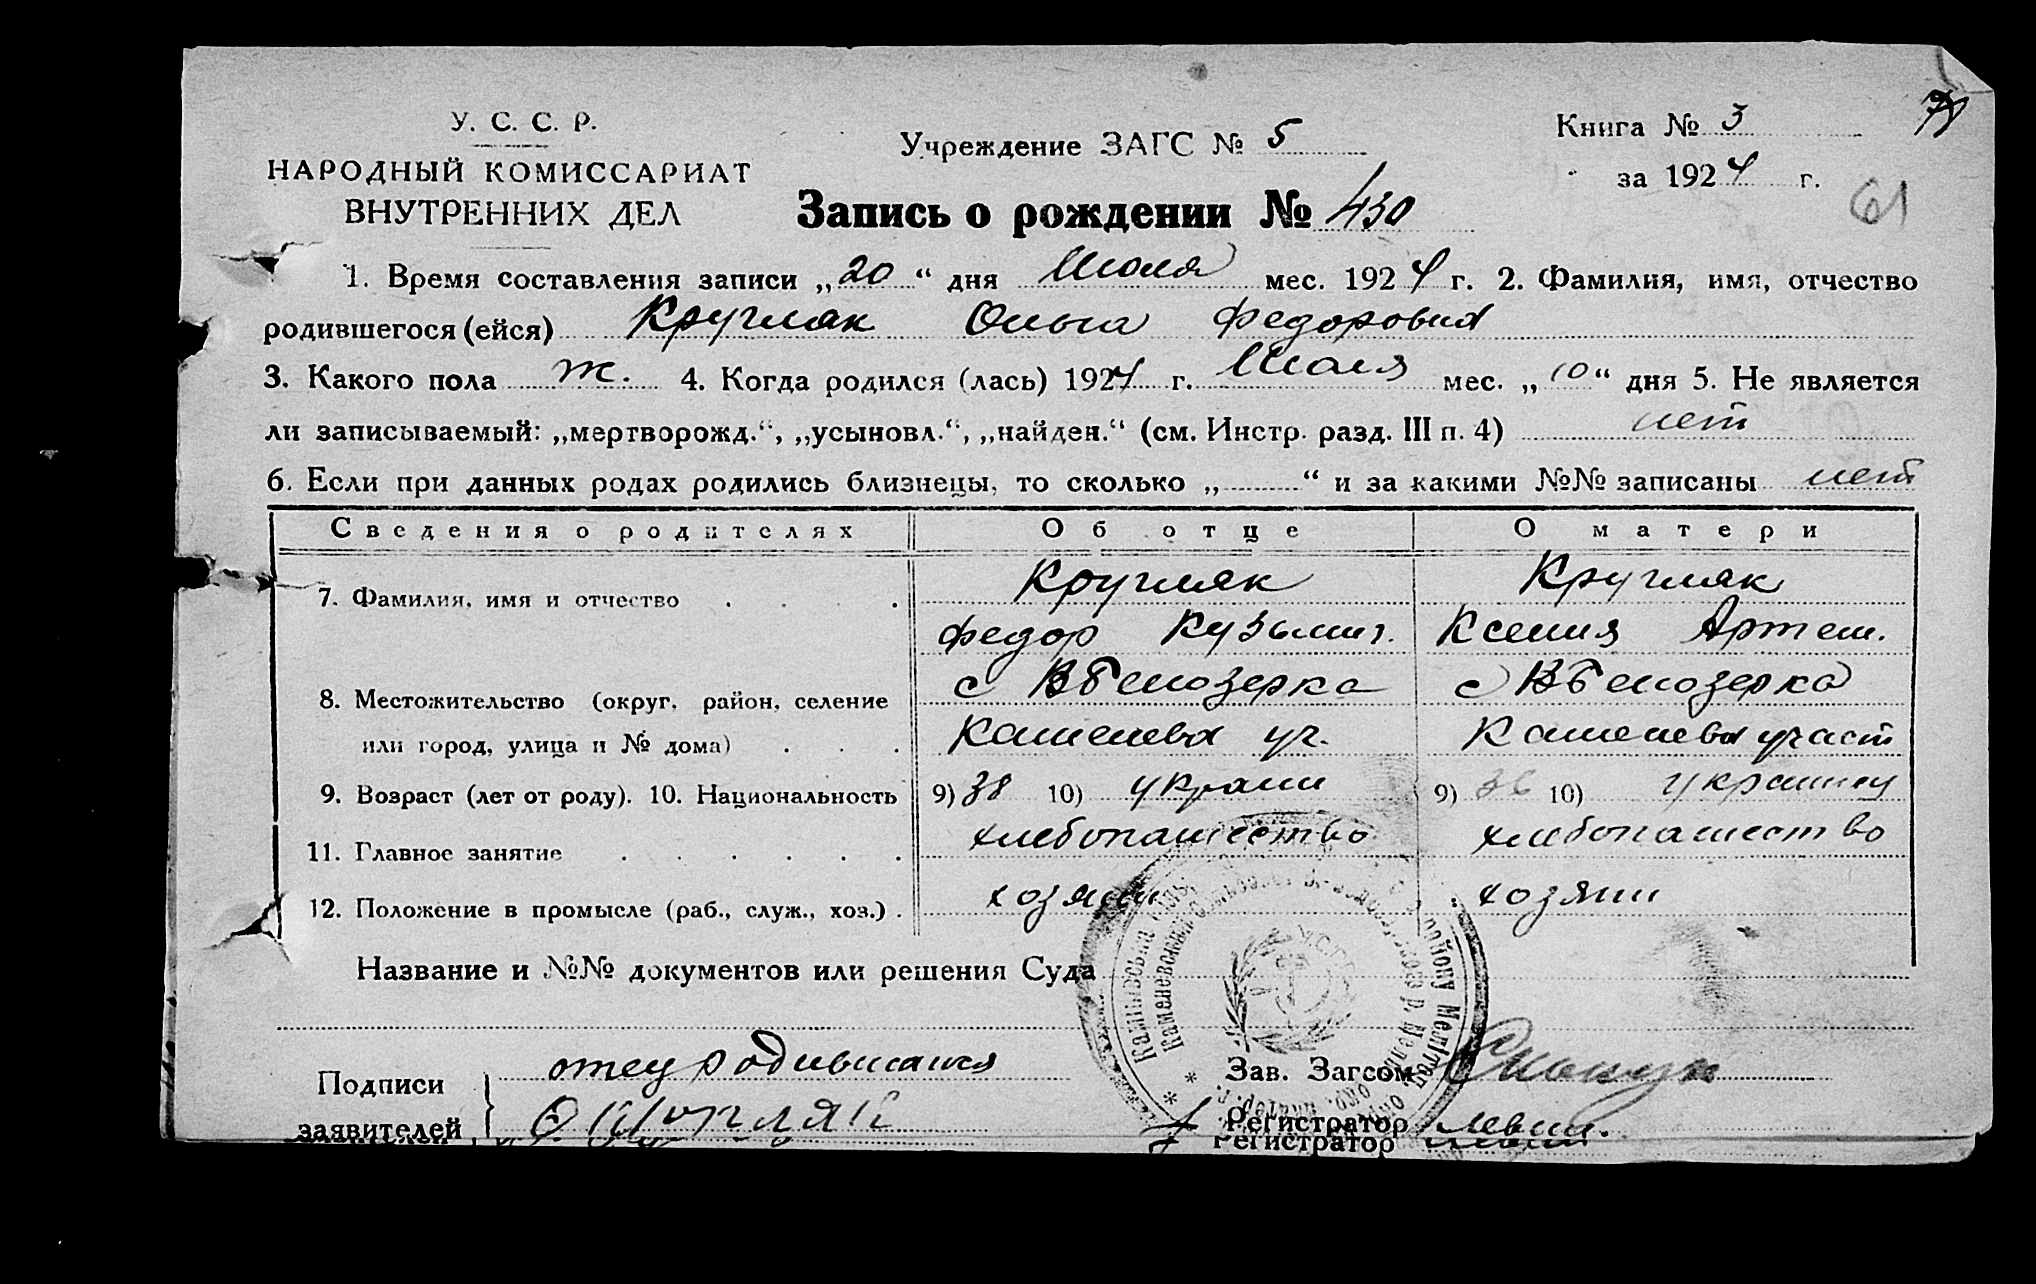 У. С. С. Р.
НАРОДНЫЙ КОМИССАРИАТ
ВНУТРЕННИХ ДЕЛ
Учреждение ЗАГС № 5
Книга № 3
за 1924 г.
61
Запись о рождении № 430
1. Время составления записи „20“ дня Июля мес. 1924 г. 2. Фамилия, имя, отчество
родившегося (ейся) Кругляк Ольга Федоровна
3. Какого пола ж. 4. Когда родился (лась) 1924 г. Июля мес. „10“ дня 5. Не является
ли записываемый: „мертворожд.“, „усыновл.“, „найден.“ (см. Инстр. разд. III п. 4) нет
6. Если при данных родах родились близнецы, то сколько „ “ и за какими №№ записаны нет
Сведения о родителях Об отце О матери
7. Фамилия, имя и отчество . . . . Кругляк Кругляк
Федор Кузьмич. Ксения Артем.
8. Местожительство (округ, район, селение с В Белозерка с В Белозерка
или город, улица и № дома) . . . Каменева уч. Каменева участ
9. Возраст (лет от роду). 10. Национальность 9) 38 10) украин 9) 36 10) украинц
11. Главное занятие . . . . . . хлебопашество хлебопашество
12. Положение в промысле (раб., служ., хоз.) . хозяин хозяин
Название и №№ документов или решения Суда
Подписи
заявителей
отец родившагося
Ф Кругляк
Зав. Загсом
Регистратор
Регистратор